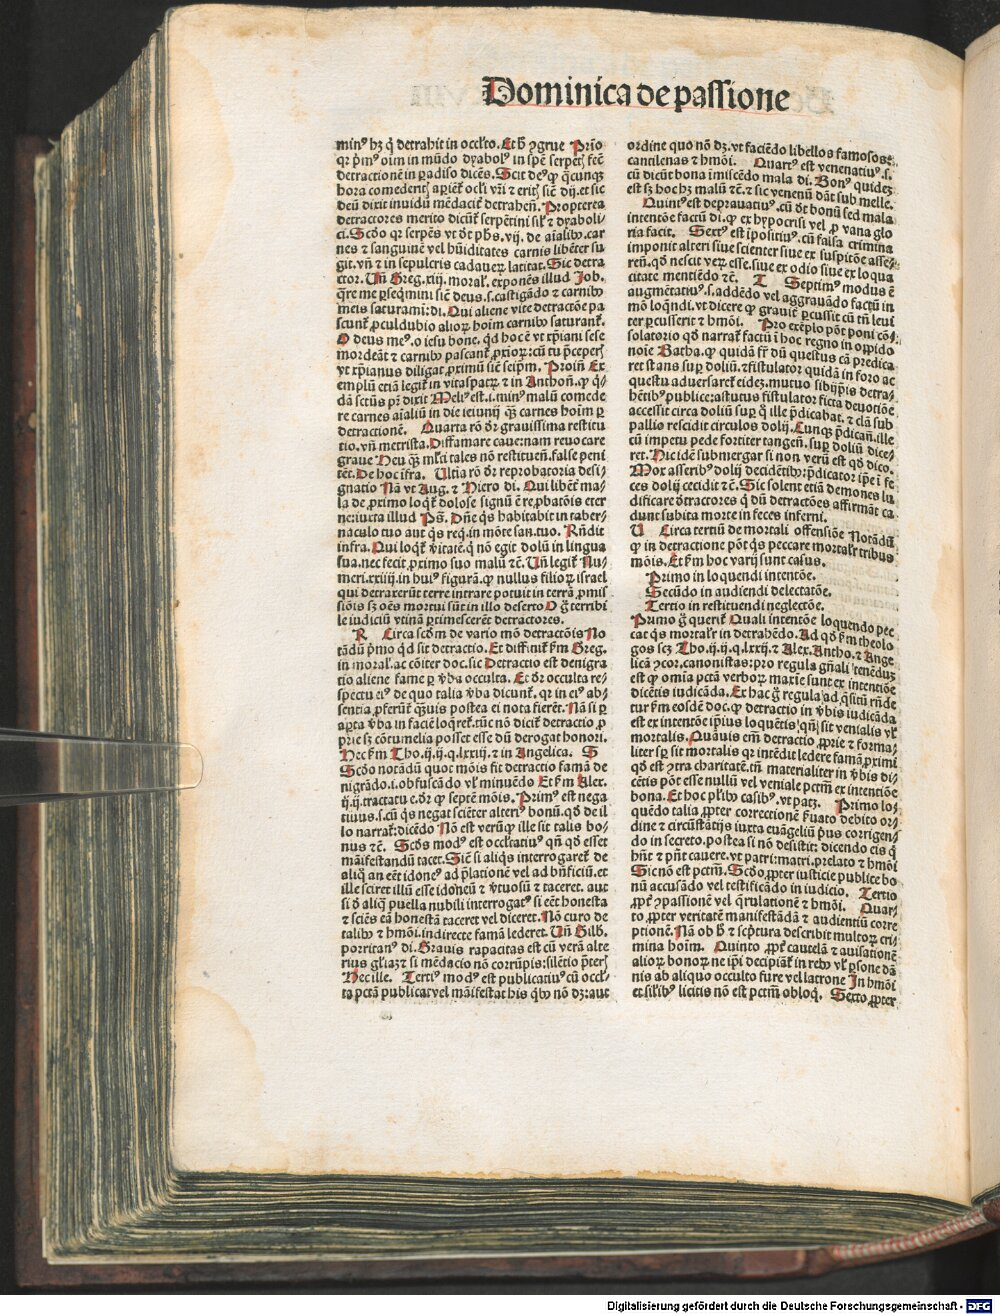 Dominica de passione
minꝰ hꝫ q̇ detrahit in occl̃to. Et h̃ ꝯgrue Prĩo
qꝛ pͥmꝰ oĩm in mũdo dyabolꝰ in spẽ serpẽtꝭ fec̃
detractionẽ in ꝑadiso dicẽs. Scit deꝰ ꝙ q̃cunqꝫ
hora comedentꝭ aꝑiẽt̃ ocl̃i vr̃i ⁊ eritꝭ sic̃ dij. et sic
deũ dixit inuidũ mẽdacit̃ detrahen̄. Propterea
detractores merito dicũt̃ serpẽtini sil̃r ⁊ dyaboli-
ci. Scd̃o qꝛ serpẽs vt d̃t ph̃s. vij. de aĩalibꝰ. car
nes ⁊ sanguinẽ vel hũiditates carnis libẽter su
git. vñ ⁊ in sepulcris cadaueꝝ latitat. Sic detra
ctor. Uñ Greg. xiij. moral̃. exponẽs illud Job.
q̃re me ꝑseq̃mini sic̃ deus. s. castigãdo ⁊ carnibꝰ
meis saturami: di. Qui aliene vite detractõe pa
scunt̃ ꝓculdubio alioꝝ hoĩm carnibꝰ saturant̃.
O deus meꝰ, o iesu bone. qd̃ hoc ẽ vt xp̃iani sese
mordeãt ⁊ carnibꝰ pascant̃ ꝓxioꝝ: cũ tu p̃ceperꝭ
vt xp̃ianus diligat ꝓximũ sic̃ seip̃m. Proin̄ Ex
emplũ etiã legit̃ in vitaspatꝝ ⁊ in Anthon̄. ꝙ q̇-
dã sctũs pr̃ dixit Melꝰ est. i. minꝰ malũ comede
re carnes aĩaliũ in die ieiunij qꝫ̃ carnes hoĩm ꝑ
detractionẽ. Quarta rõ d̃r grauissima restitu
tio. vñ metrista. Diffamare caue: nam reuocare
graue Heu qꝫ̃ ml̃ti tales nõ restituẽt. false peni
tẽt. De hoc ĩfra. Ultĩa rõ d̃r reprobatoria desi-
gnatio Nã vt Aug. ⁊ Hiero di. Qui libẽt̃ ma-
la de ꝓximo loqt̃ dolose signũ ẽ reꝓbatõis eter
ne: iuxta illud Ps̃. Dñe q̇s habitabit in taber-
naculo tuo aut q̇s req. in mõte san. tuo. Rñdit
infra. Qui loqt̃ ṽitatẽ. q̇ nõ egit dolũ in lingua
sua. nec fecit ꝓximo suo malũ ⁊c̃. Uñ legit̃ Nu-
meri. xxiiij. in huiꝰ figurã. ꝙ nullus filioꝝ israel
qui detraxerũt terre intrare potuit in terrã ꝓmis
siõis sꝫ oẽs mortui sũt in illo deserto O g̃ terribi
le iudiciũ vtinã ꝑtimescerẽt detractores.
R Circa scd̃m de vario mõ detractõis No
tãdũ pͥmo qd̃ sit detractio. Et diffinit̃ ẜm Greg.
in moral. ac cõiter doc. sic Detractio est denigra
tio aliene fame ꝑ ṽba occulta. Et d̃r occulta re-
spectu eiꝰ de quo talia ṽba dicunt̃. qꝛ in eiꝰ ab-
sentia ꝓferũt̃ qꝫ̃uis postea ei nota fierẽt. Nã si ꝑ
aꝑta ṽba in faciẽ loq̃ret̃. tũc nõ dicit̃ detractio ꝓ
prie sꝫ cõtumelia posset esse dũ derogat honori.
Hec ẜm Tho. ij. ij. q. lxxiij. ⁊ in Angelica. S
Scd̃o notãdũ quot mõis fit detractio famã de
nigrãdo. i. obfuscãdo vl̃ minuẽdo Et ẜm Alex.
ij. ij. tractatu e. d̃r ꝙ septẽ mõis. Primꝰ est nega
tiuus. s. cũ q̇s negat sciẽter alteriꝰ bonũ. qd̃ de il
lo narrat̃: dicẽdo Nõ est verũ ꝙ ille sit talis bo-
nus ⁊c̃. Scd̃s modꝰ est occl̃tatiuꝰ qñ qd̃ esset
mãifestandũ tacet. Sic̃ si aliq̇s interrogaret̃ de
aliq̇ an eẽt idoneꝰ ad p̃lationẽ vel ad bñficiũ. et
ille sciret illũ esse idoneũ ⁊ ṽtuosũ ⁊ taceret. aut
si d̃ aliq̃ puella nubili interrogatꝰ si eẽt honesta
⁊ sciẽs eã honestã taceret vel diceret. Nõ curo de
talibꝰ ⁊ hm̃õi. indirecte famã lederet. Uñ Gilb.
porritanꝰ di. Grauis rapacitas est cũ verã alte
rius gl̃iaꝫ ⁊ si mẽdacio nõ corrũpis: silẽtio p̃terꝭ
Hec ille. Tertiꝰ modꝰ est publicatiuꝰ cũ occl̃-
ta pctã publicat vel mãifestat his q̇bꝰ nõ dꝫ: aut
ordine quo nõ dꝫ. vt faciẽdo libellos famosos:
cantilenas ⁊ hm̃õi. Quartꝰ est venenatiuꝰ. s.
cũ dicũt bona ĩmiscẽdo mala di. Bonꝰ quideꝫ
est sꝫ hoc hꝫ malũ ⁊c̃. ⁊ sic venenũ dãt sub melle.
Quintꝰ est deprauatiuꝰ. cũ d̃t bonũ sed mala
intentõe factũ di. ꝙ ex hypocrisi vel ꝓ vana glo
ria facit. Sextꝰ est ĩpositiuꝰ. cũ falsa crimina
imponit alteri siue scienter siue ex suspitõe asse-
rẽn. qd̃ nescit veꝝ esse. siue ex odio siue ex loqua
citate mentiẽdo ⁊c̃. T Septimꝰ modus ẽ
augmẽtatiuꝰ. s. addẽdo vel aggrauãdo factũ in
mõ loqñdi. vt dicere ꝙ grauit̃ ꝑcussit cũ tñ leui
ter ꝑcusserit ⁊ hm̃õi. Pro exẽplo põt poni cõ-
solatorio qd̃ narrat̃ factũ ĩ hoc regno in oppido
noĩe Batha. ꝙ quidã fr̃ dũ questus cã predica
ret stans suꝑ doliũ. ⁊ fistulator quidã in foro ac
questu aduersaret̃ eideꝫ. mutuo sibijp̃is detra-
hẽtibꝰ publice: astutus fistulator ficta deuotiõe
accessit circa doliũ suꝑ q̇ ille p̃dicabat. ⁊ clã sub
pallio rescidit circulos dolij. Cunqꝫ p̃dicañ. ille
cũ impetu pede fortiter tangeñ. suꝑ doliũ dice-
ret. Hic idẽ submergar si non verũ est qd̃ dico.
Mox asseribꝰ dolij decidẽtibꝰ: p̃dicator ip̃e ĩ fe
ces dolij cecidit ⁊c̃. Sic solent etiã demones lu
dificare d̃tractores q̇ dũ detractões affirmãt ca
dunt subita morte in feces inferni.
U Circa tertiũ de mortali offensiõe Notãdũ
ꝙ in detractione põt q̇s peccare mortal̃r tribus
mõis. Et ẜm hoc varij sunt casus.
Primo in loquendi intentõe.
Secũdo in audiendi delectatõe.
Tertio in restituendi neglectõe.
Primo g̃ querit̃ Quali intentõe loquendo pec
cat q̇s mortal̃r in detrahẽdo. Ad qd̃ ẜm theolo
gos sꝫ Tho. ij. ij. q. lxxij. ⁊ Alex. Antho. ⁊ Ange
licã ⁊cor. canonistas: pro regula gñali tenẽduꝫ
est ꝙ omia pctã verboꝝ maxie sunt ex intentiõe
dicẽtis iudicãda. Ex hac g̃ regula ad q̃sitũ rñde
tur ẜm eosdẽ doc. ꝙ detractio in ṽbis iudicãda
est ex intentõe ip̃ius loquẽtis. qñqꝫ sit venialis vl̃
mortalis. Quãuis em̃ detractio ꝓprie ⁊ forma-
liter sp̃ sit mortalis qꝛ intẽdit ledere famã ꝓximi
qd̃ est ꝯtra charitatẽ. tñ materialiter in ṽbis di-
cẽtis põt esse nullũ vel veniale pctm̃ ex intentiõe
bona. Et hoc pl̃ibꝰ casibꝰ. vt patꝫ. Primo lo-
quẽdo talia ꝓpter correctionẽ ẜuato debito or-
dine ⁊ circũstãtijs iuxta euãgeliũ pͥus corrigen
do in secreto. postea si nõ desistit: dicendo eis q̇
hñt ⁊ pñt cauere. vt patri: matri. prelato ⁊ hm̃õi
Sic nõ est pctm̃. Scd̃o ꝓpter iusticie publice bo
nũ accusãdo vel testificãdo in iudicio. Tertio
ꝓpt̃ ꝯpassionẽ vel q̃rulationẽ ⁊ hm̃õi. Quar-
to ꝓpter veritatẽ manifestãdã ⁊ audientiũ corre
ptionẽ. Nã ob h̃ ⁊ scp̃tura describit multoꝝ cri
mina hoĩm. Quinto ꝓpt̃ cautelã ⁊ auisationẽ
alioꝝ bonoꝝ ne ip̃i decipiãt̃ in rebꝰ vl̃ ꝑsone dã
nis ab aliquo occulto fure vel latrone In hm̃õi
et sil̃ibꝰ licitis nõ est pctm̃ obloq̇. Sexto ꝓpter
Digitalisierung gefördert durch die Deutsche Forschungsgemeinschaft - DFG